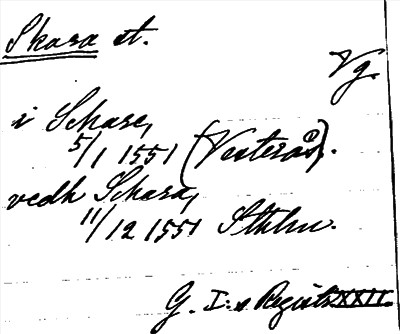 Skara st.
Vg.
i Skare,
5/1 1551 (Vesterås).
vedh Skara,
11/12 1551 Sthlm.
G. I:s Registr. XXII.